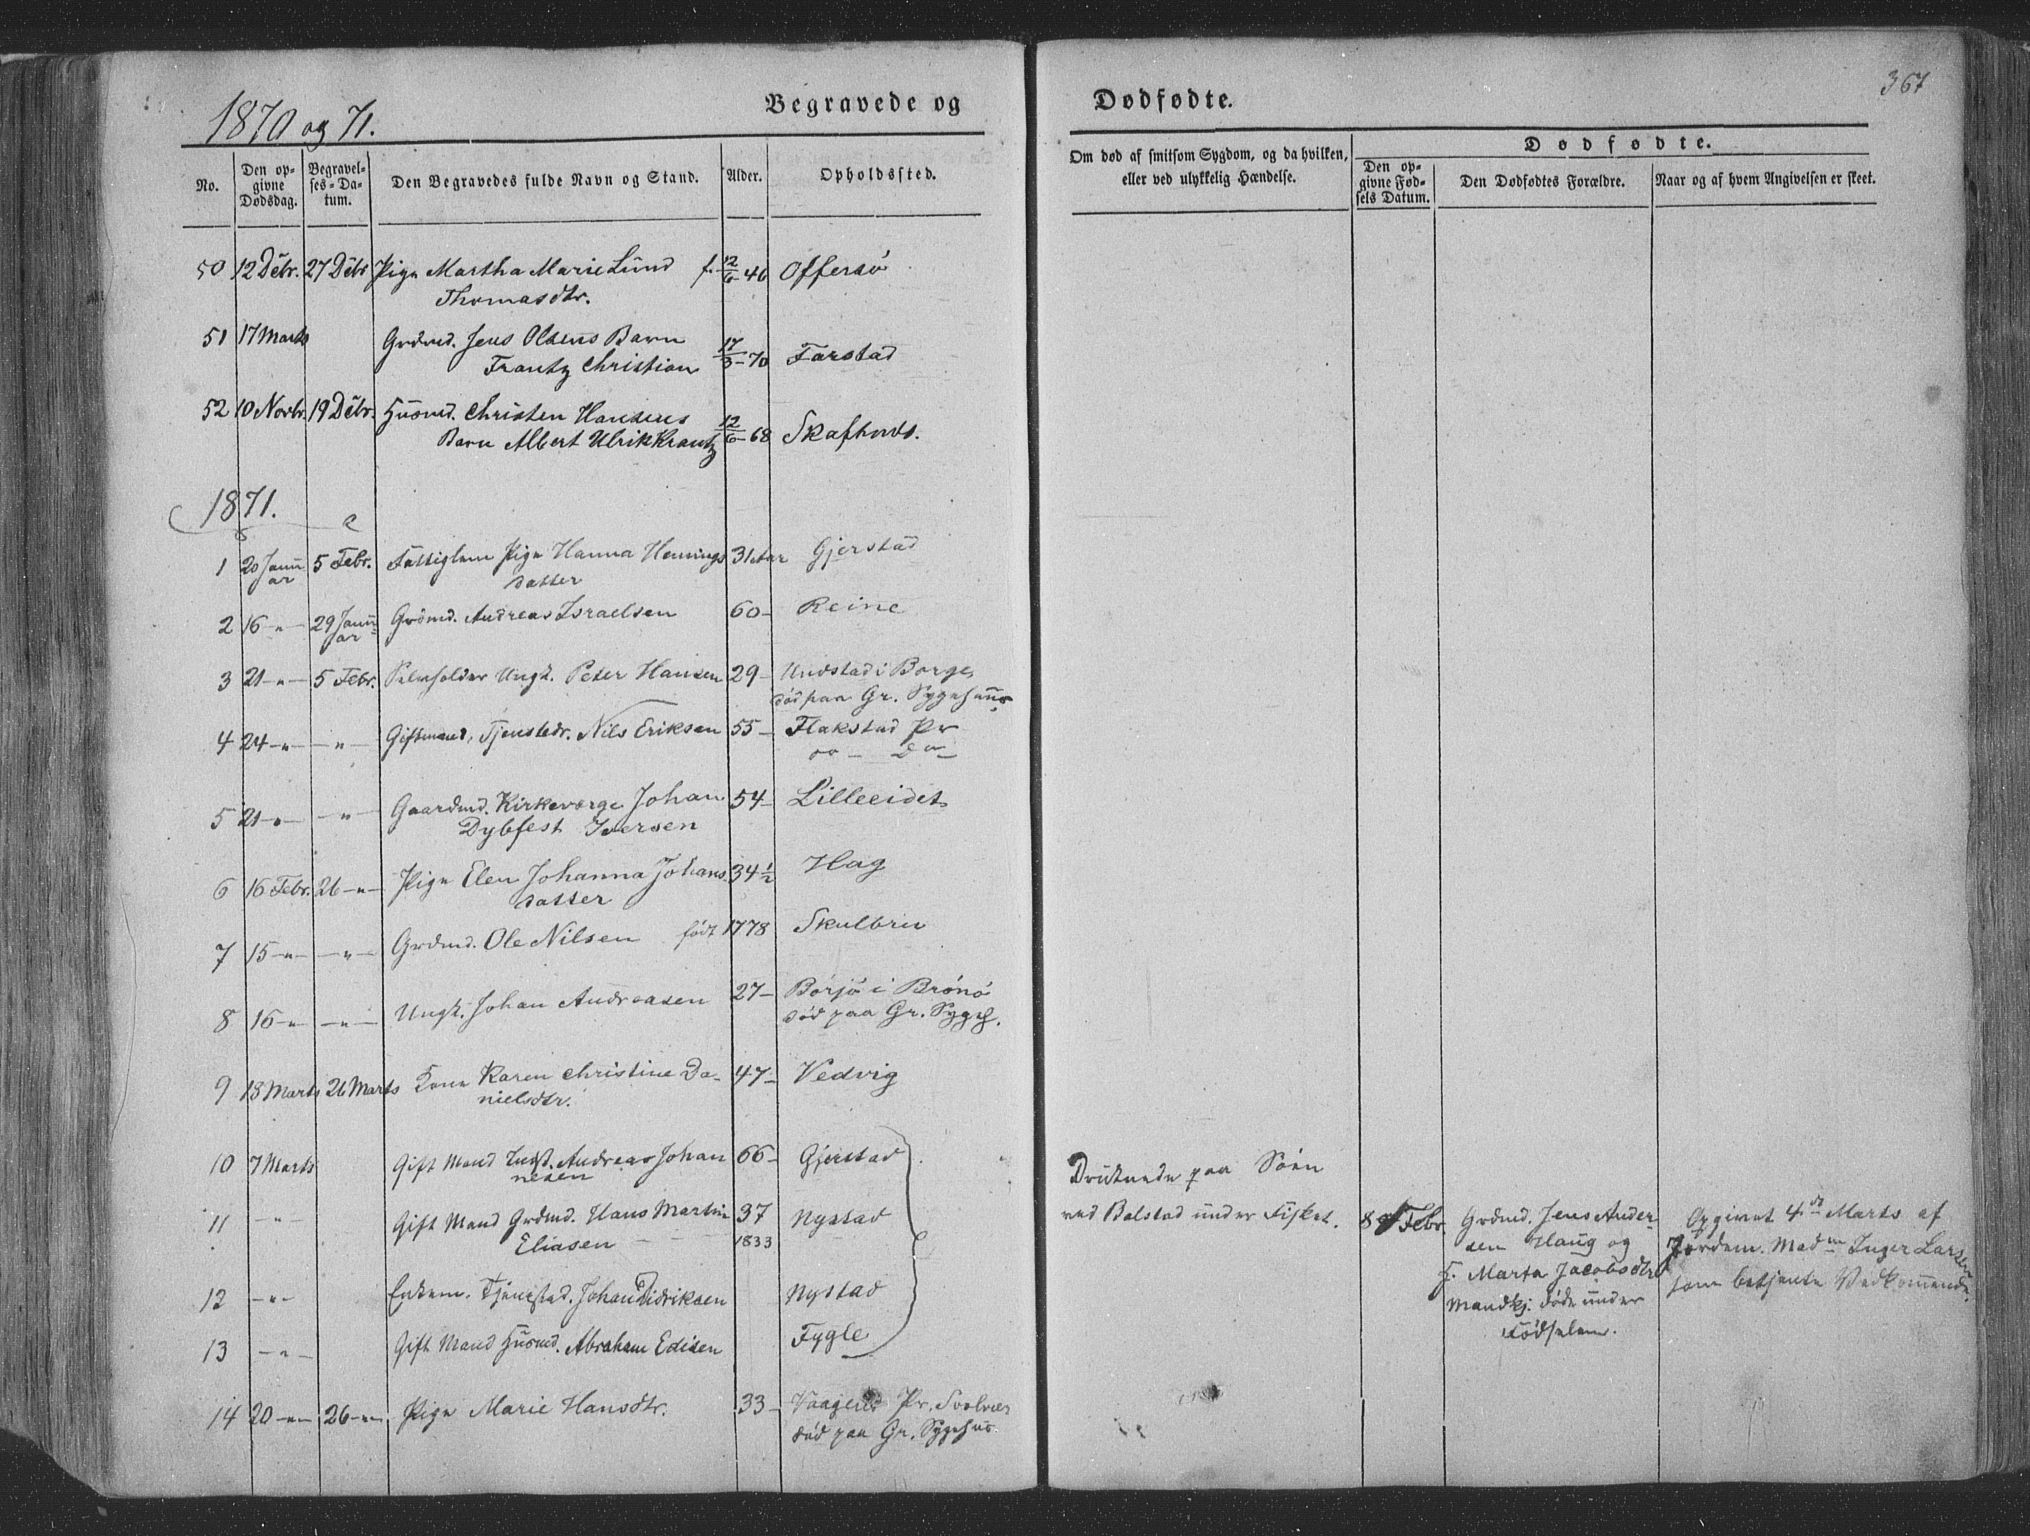 367
1870 og 71.
Begravede og Dødfødte.
No.
Den op-
givne
Dødsdag.
Begravel-
ses-Da-
tum.
Den Begravedes fulde Navn og Stand.
Alder.
Opholdssted.
Om død af smitsom Sygdom, og da hvilken,
eller ved ulykkelig Hændelse.
Dødfødte.
Den op-
givne Fød-
sels Datum.
Den Dødfødtes Forældre.
Naar og af hvem Angivelsen er skeet.
50 12 Debr. 27 Debr Pige Martha Marie Lund f. 12/6 46 Offersø
Thomasdtr.
51 17 Marts Grdmd. Jens Olsens Barn
Frantz Christian 17/3 - 70 Farstad
52 10 Novbr. 19 Debr. Husmd. Christen Hansens
Barn Albert Ulrik Krantz 12/6 - 68
1871.
1 20 Janu 5 Febr. Fattiglem Pige Hanna Hennings 31 Aar Gjerstad
ar datter
2 16 -"- 29 Janu Grdmd. Andreas Israelsen 60 - Reine
ar
3 21 -"- 5 Febr. Ungk. Peter Hansen 29 - Undstad i Borge,
død paa Gr. Sygehuus
4 24 -"- -"- Giftmand, Tjenstedr. Nils Eriksen 55 - Flakstad Pr
oo - Do
5 21 -"- -"- Gaardmd. Kirkeværge Johan 54 - Lilleeidet
Dybfest Iversen
6 16 Febr. 26 -"- Pige Elen Johanna Johans 34 1/2 Hag
datter
7 15 -"- -"- Grdmd. Ole Nilsen født 1778 Skulbru
8 16 -"- -"- Ungk. Johan Andreasen 27 - Borjø i Brønø
død paa Gr. Sygeh.
9 18 Marts 26 Marts Kone Karen Christine Da- 47 - Vedvig
nielsdtr.
10 7 Marts Gift Mand Indst. Andreas Johan 66 - Gjerstad
nesen
Druknede paa Søen
11 -"- Gift Mand Grdmd. Hans Martin 37 Nystad
Eliasen - - - 1833
ved Balstad under Fisket.
12 -"- Enkem. Tjenstad. Johan Didriksen Nystad
13 -"- Gift Mand Husmd. Abraham Edisen Fygle
14 20 -"- 26 -"- Pige Marie Hansdtr. 33 - Vaagens Pr. Svolvær
død paa Gr. Sygehus.
8 Febr. Grdmd. Jens Ander-
sen Haug og
K. Marta Jacobsdtr
Mandkj. døde under
Fødselen.
Opgivet 4de Marts af
Jordem. Madm Inger Larsen
som betjente Vedkommende.